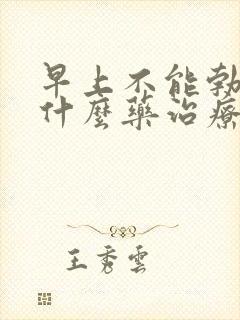 早上不能勃
什麼藥治療
王秀雲